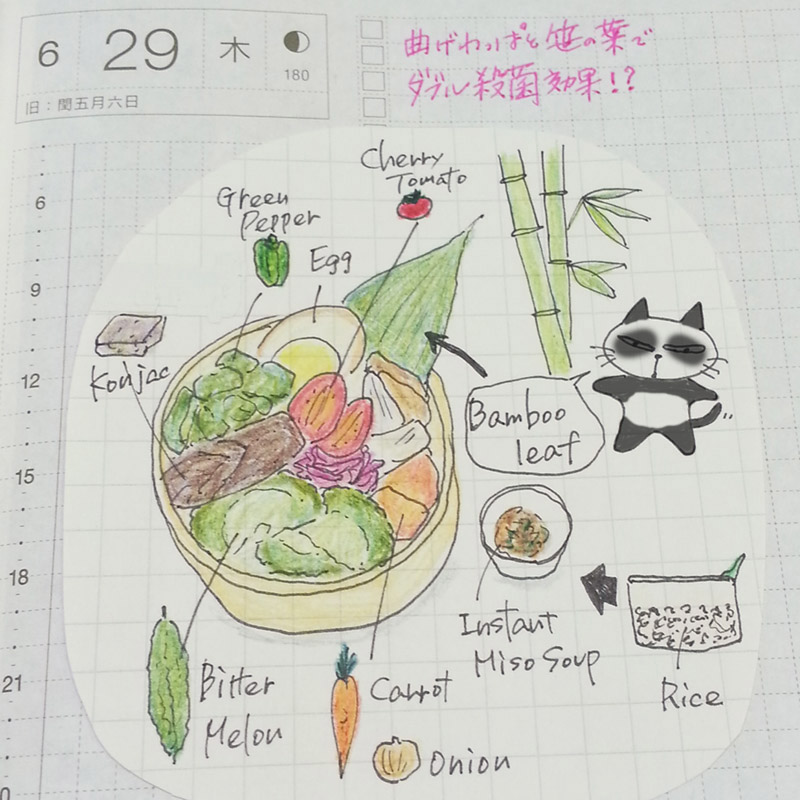 6 29 木
180
旧：閏五月六日
曲げわっぱと笹の葉で
ダブル殺菌効果！？
6
9
12
15
18
21
Cherry
Tomato
Green
Pepper
Egg
Konjac
Bamboo
leaf
Instant
Miso Soup
Rice
Bitter
Melon
Carrot
Onion